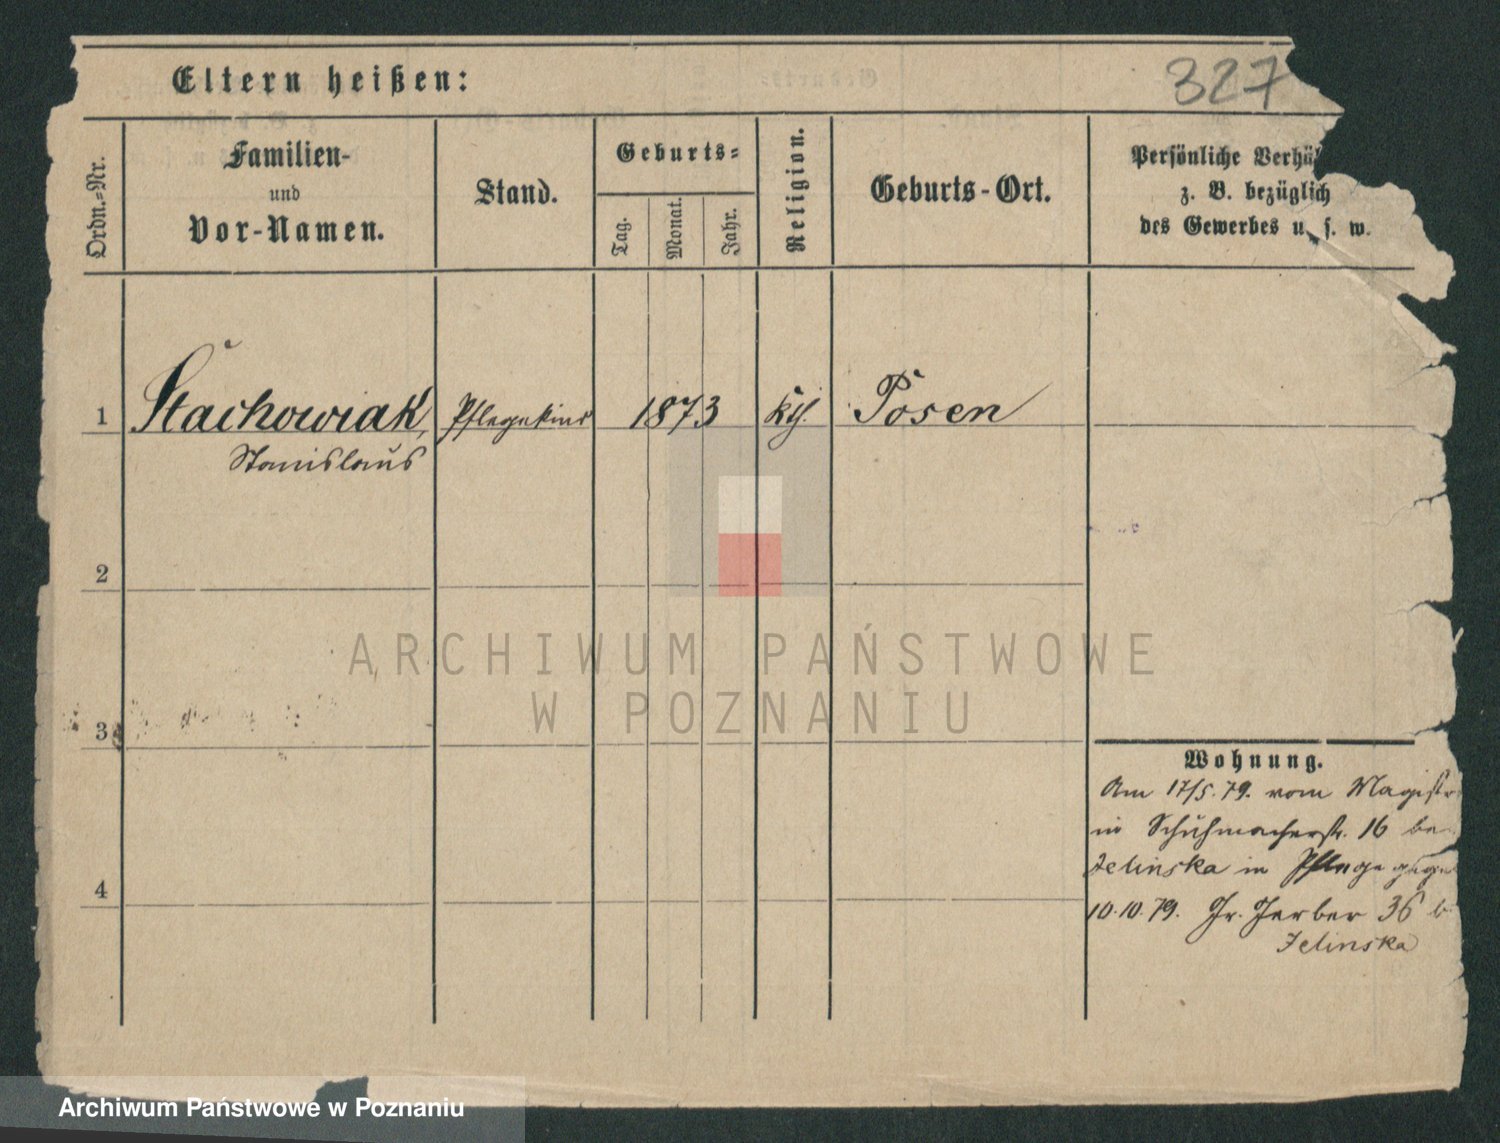 327
Eltern heißen:
Ordn.-Nr.
Familien-
und
Vor-Namen.
Stand.
Geburts-
Tag.
Monat.
Jahr.
Religion.
Geburts-Ort.
Persönliche Verhäl
z. B. bezüglich
des Gewerbes u. s. w.
1 Stachowiak, Pflegekind 1873 kth. Posen
Stanislaus
2
3
4
Wohnung.
Am 17/5.79. vom Magistr
in Schuhmacherstr. 16 be
Zelinska in Pflege gege
10.10.79. Gr. Gerber 36 b
Zelinska
ARCHIWUM PAŃSTWOWE
W POZNANIU
Archiwum Państwowe w Poznaniu